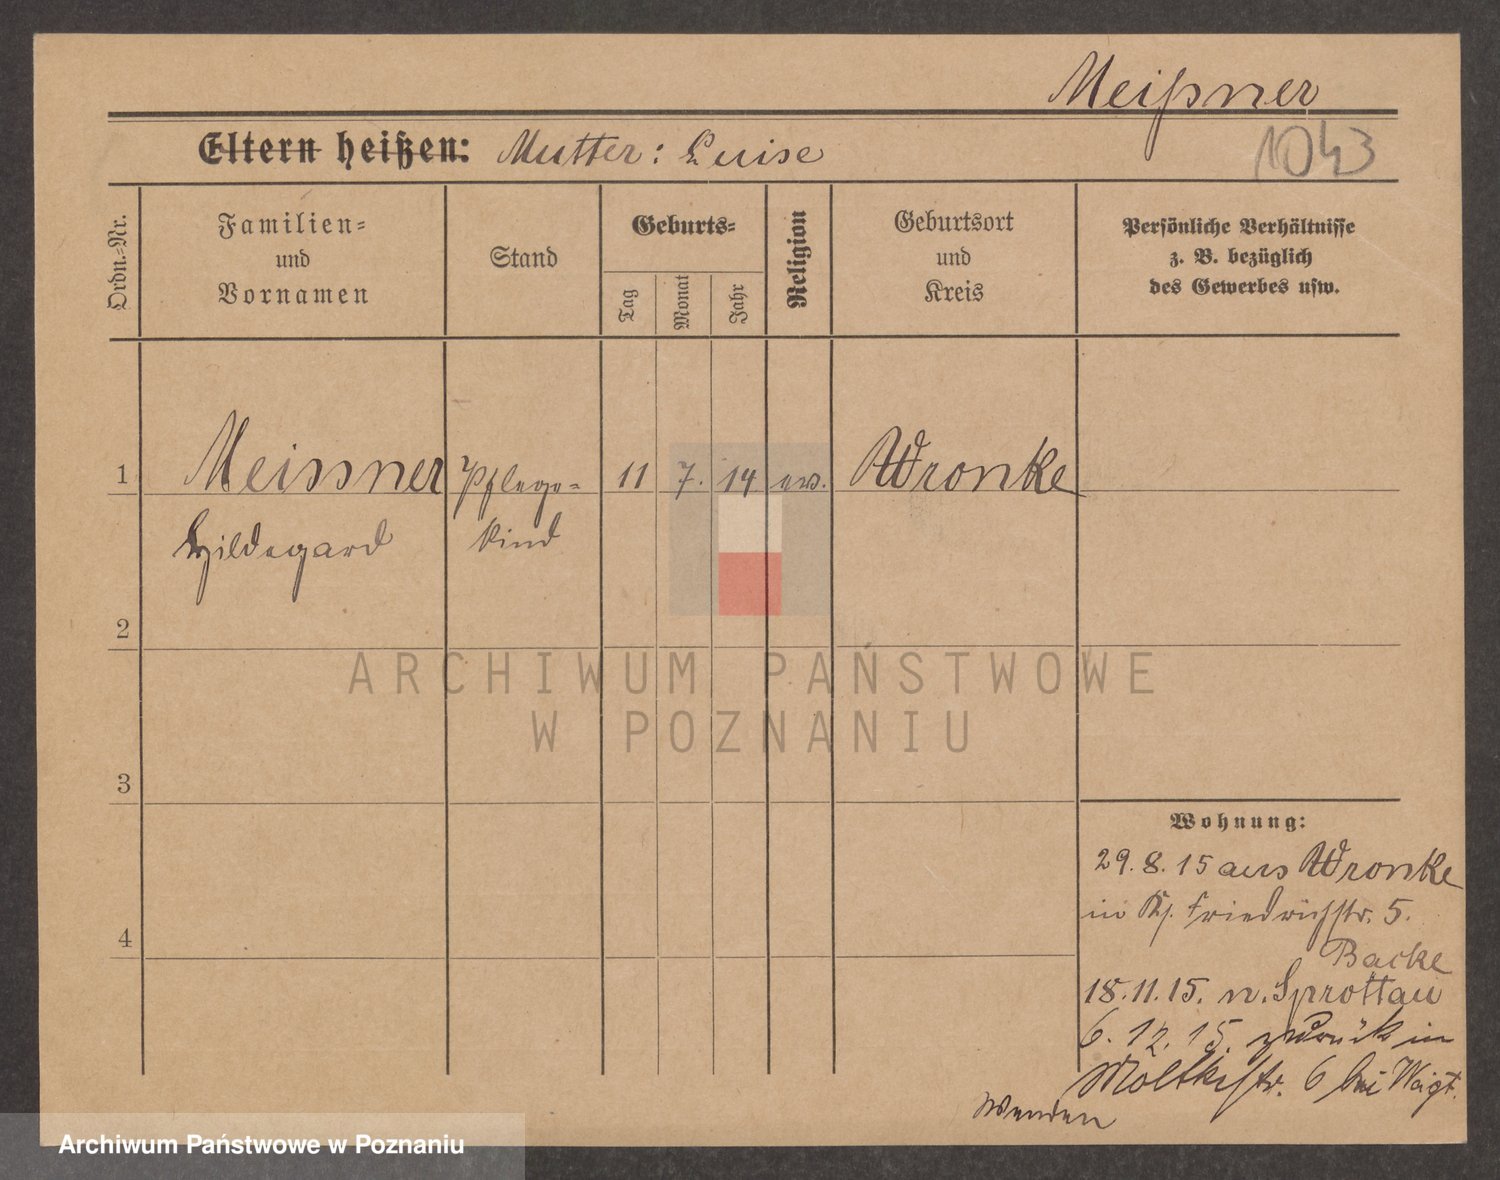 Meißner
Eltern heißen: Mutter: Luise
1043
Ordn.-Nr.
Familien-
und
Vornamen
Stand
Geburts-
Tag
Monat
Jahr
Religion
Geburtsort
und
Kreis
Persönliche Verhältnisse
z. B. bezüglich
des Gewerbes usw.
1 Meissner Pflege- 11 7. 14 ev. Wronke
Hildegard kind
2
ARCHIWUM PAŃSTWOWE
W POZNANIU
3
Wohnung:
29. 8. 15 aus Wronke
in Friedrichstr. 5.
Backe
4
18. 11. 15. n. Sprottau
6. 12. 15. zurück in
Moltkestr. 6 bei Weigt.
Wenden
Archiwum Państwowe w Poznaniu